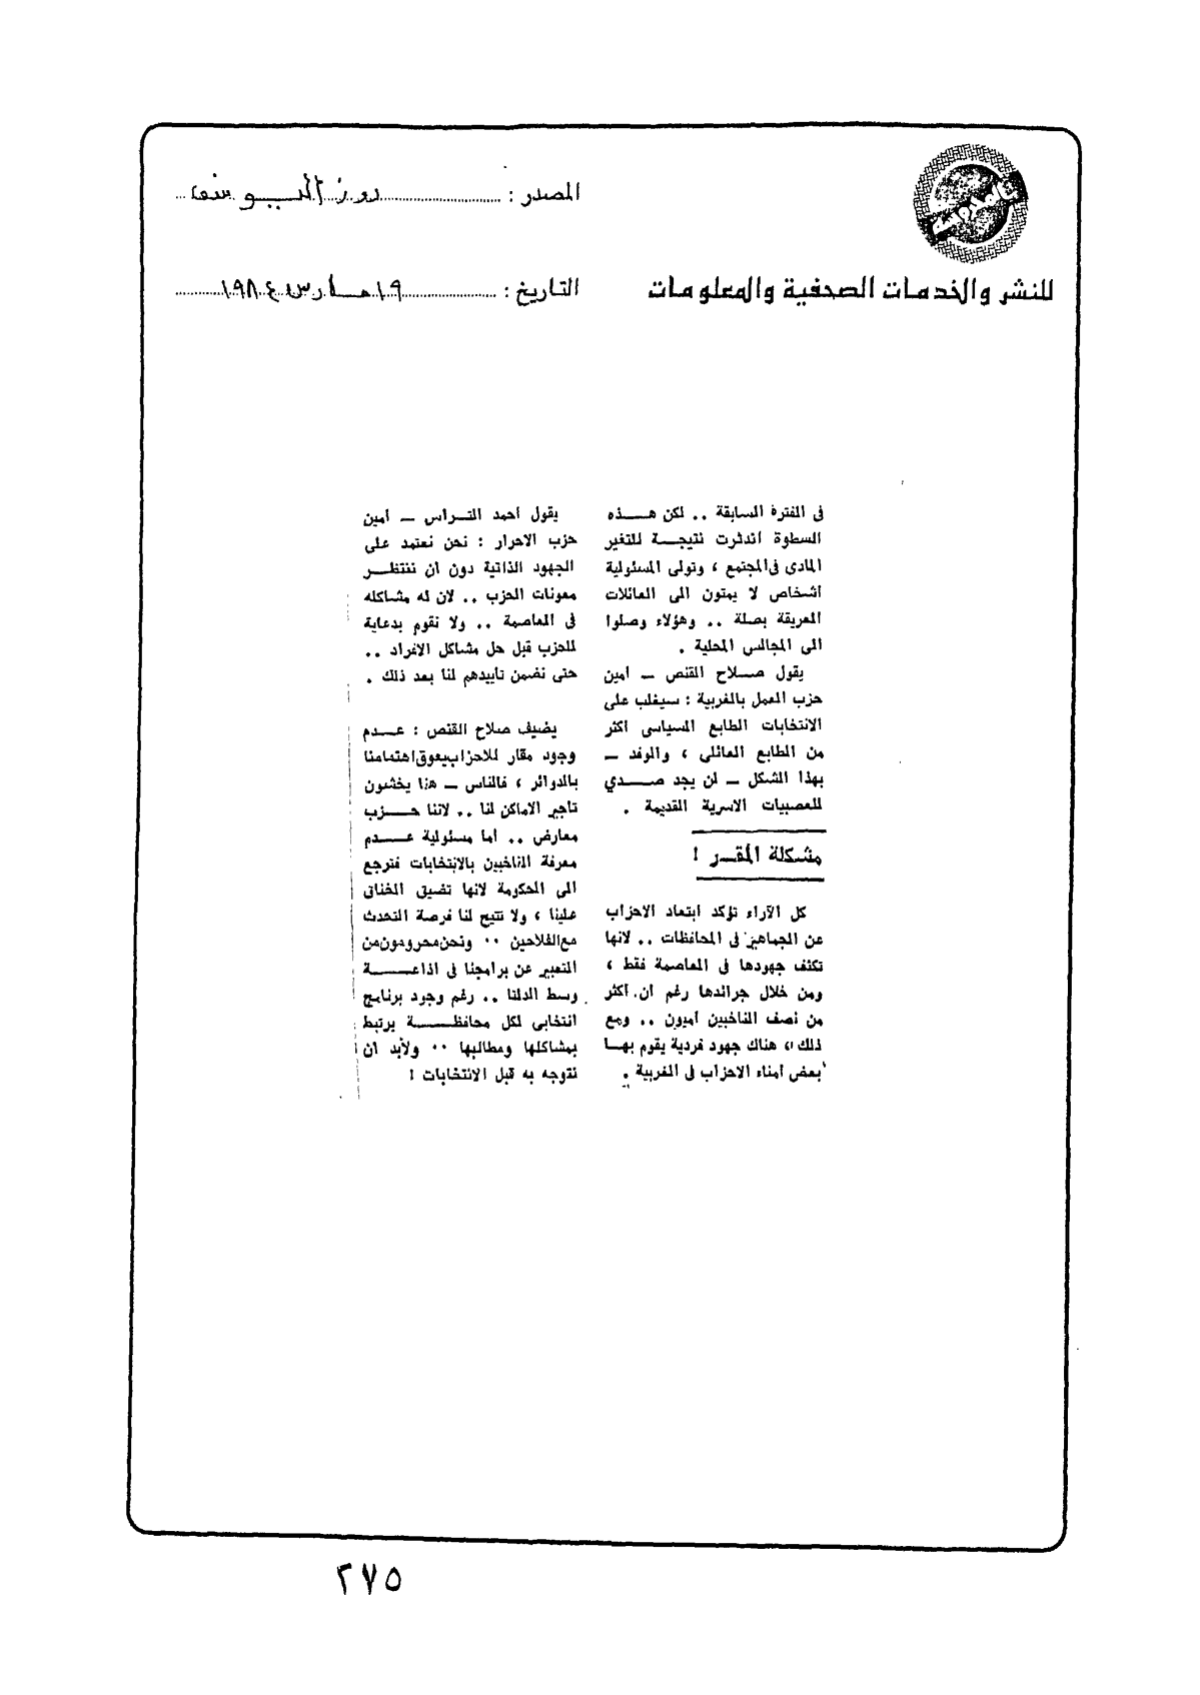 المصدر : روز اليوسف
للنشر والخدمات الصحفية والمعلومات
التاريخ : ١٩ مارس ١٩٨٤
فى الفترة السابقة .. لكن هـــذه
السطوة اندثرت نتيجـــة للتغير
المادى فى المجتمع ، وتولى المسئولية
أشخاص لا يمتون الى العائلات
العريقة بصلة .. وهؤلاء وصلوا
الى المجالس المحلية .
يقول صـــلاح القنص ــ أمين
حزب العمل بالغربية : سيغلب على
الانتخابات الطابع السياسى أكثر
من الطابع العائلى ، والوفد ــ
بهذا الشكل ــ لن يجد صـــدي
للعصبيات الاسرية القديمة .
مشكلة المقــر !
كل الآراء تؤكد ابتعاد الاحزاب
عن الجماهير فى المحافظات .. لانها
تكثف جهودها فى العاصمة فقط ،
ومن خلال جرائدها رغم ان أكثر
من نصف الناخبين أميون .. ومع
ذلك ، هناك جهود فردية يقوم بهـا
بعض أمناء الاحزاب فى الغربية .
يقول أحمد التـــراس ــ أمين
حزب الاحرار : نحن نعتمد على
الجهود الذاتية دون ان ننتظـــر
معونات الحزب .. لان له مشاكله
فى العاصمة .. ولا نقوم بدعاية
للحزب قبل حل مشاكل الافراد ..
حتى نضمن تأييدهم لنا بعد ذلك .
يضيف صلاح القنص : عـــدم
وجود مقار للاحزاب يعوق اهتمامنا
بالدوائر ، فالناس ــ هنا يخشون
تأجير الاماكن لنا .. لاننا حـــزب
معارض .. أما مسئولية عـــدم
معرفة الناخبين بالانتخابات فترجع
الى الحكومة لانها تضيق الخناق
علينا ، ولا تتيح لنا فرصة التحدث
مع الفلاحين .. ونحن محرومون من
التعبير عن برامجنا فى اذاعـــة
وسط الدلتا .. رغم وجود برنامج
انتخابى لكل محافظـــة يرتبط
بمشاكلها ومطالبها .. ولابد ان
نتوجه به قبل الانتخابات !
٢٧٥